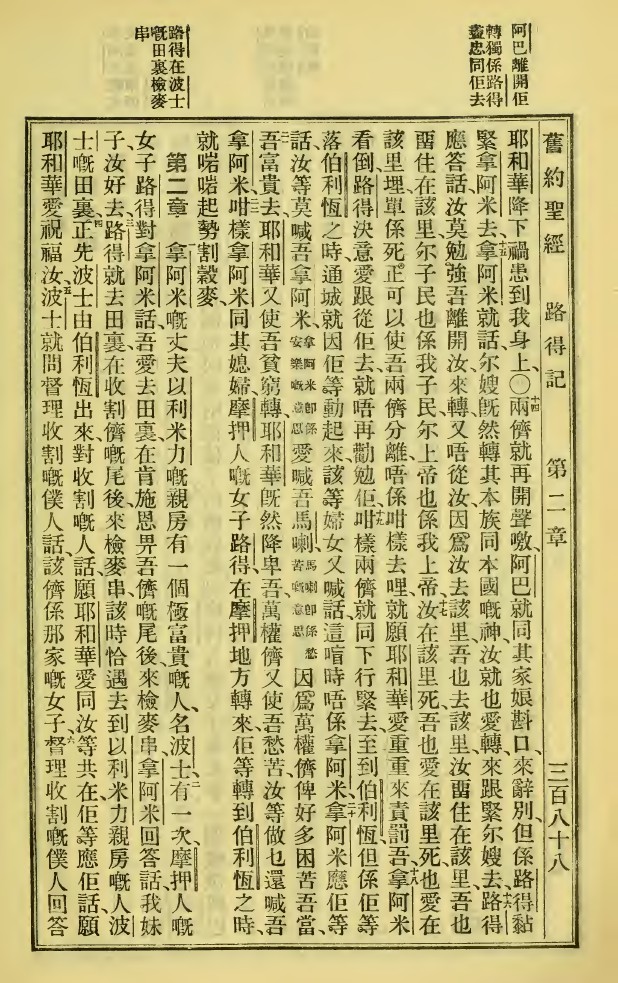 阿巴離開佢
轉獨係路得
盡忠同佢去
路得在波士
嘅田裏檢麥
串
舊約聖經 路得記 第二章 三百八十八
耶和華降下禍患到我身上、〇十四兩儕就再開聲噭、阿巴就同其家娘斟口、來辭別、但係路得黏
緊拿阿米去、十五拿阿米就話、尔嫂旣然轉其本族同本國嘅神、汝就也愛轉來跟緊尔嫂去、十六路得
應答話、汝莫勉強吾離開汝來轉、又唔從汝、因爲汝去該里、吾也去該里、汝畱住在該里、吾也
畱住在該里、尔子民也係我子民、尔上帝也係我上帝、十七汝在該里死、吾也愛在該里死、也愛在
該里埋、單係死正可以使吾兩儕分離、唔係咁樣去哩、就願耶和華愛重重來責罰吾、十八拿阿米
看倒路得決意愛跟從佢去、就唔再勸勉佢、十九咁樣兩儕就同下行緊去、至到伯利恆、但係佢等
落伯利恆之時、通城就因佢等動起來、該等婦女又喊話、這喑時唔係拿阿米、二十拿阿米應佢等
話、汝等莫喊吾拿阿米、拿阿米卽係安樂嘅意思愛喊吾馬喇、馬喇卽係愁苦嘅意思因爲萬權儕俾好多困苦吾當、
二一吾富貴去、耶和華又使吾貧窮轉、耶和華旣然降卑吾、萬權儕又使吾愁苦、汝等做乜還喊吾
拿阿米、二二咁樣拿阿米同其媳婦摩押人嘅女子路得、在摩押地方轉來、佢等轉到伯利恆之時、
就啱啱起勢割穀麥、
第二章 一拿阿米嘅丈夫以利米力嘅親房有一個極富貴嘅人、名波士、二有一次、摩押人嘅
女子路得對拿阿米話、吾愛去田裏、在肯施恩畀吾儕嘅尾後來檢麥串、拿阿米回答話、我妹
子汝好去、三路得就去田裏、在收割儕嘅尾後來檢麥串、該時恰遇去到以利米力親房嘅人波
士嘅田裏、四正先波士由伯利恆出來、對收割嘅人話、願耶和華愛同汝等共在、佢等應佢話、願
耶和華愛祝福汝、五波士就問督理收割嘅僕人話、該儕係那家嘅女子、六督理收割嘅僕人回答